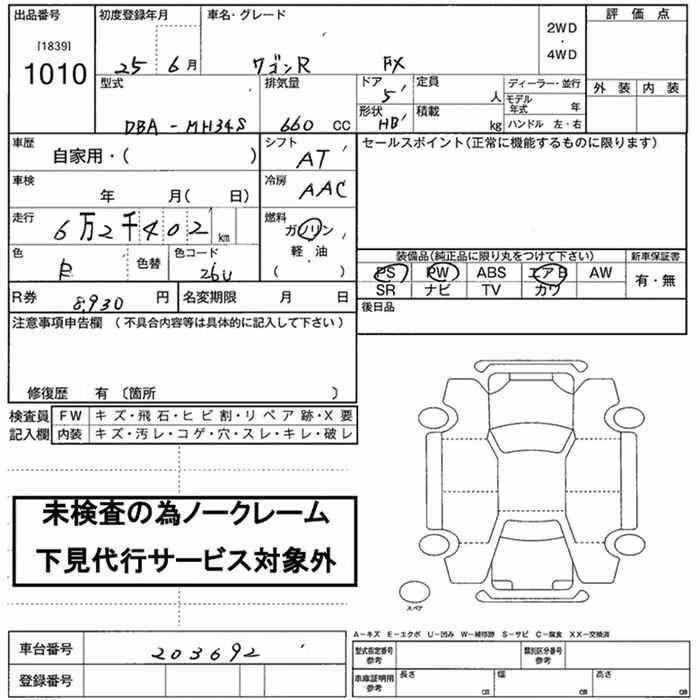 出品番号 初度登録年月 車名・グレード 評価点
[1839]
1010
25 6月 ワゴンR FX
2WD
・
4WD
型式 排気量 ドア 5 定員 人 ディーラー・並行 外装 内装
DBA-MH34S 660 CC 形状 HB 積載 kg モデル年式 年
ハンドル 左・右
車歴 自家用・( ) シフト AT セールスポイント(正常に機能するものに限ります)
車検 年 月( 日) 冷房 AAC
走行 6万2千402 km 燃料 ガソリン
軽・油
( )
色 白 色替 色コード 26U
装備品(純正品に限り丸をつけて下さい) 新車保証書
PS PW ABS エアB AW 有・無
SR ナビ TV カワ
R券 8,930 円 名変期限 月 日 後日品
注意事項申告欄 (不具合内容等は具体的に記入して下さい)
修復歴 有 〔箇所 〕
検査員 FW キズ・飛石・ヒビ割・リペア跡・X要
記入欄 内装 キズ・汚レ・コゲ・穴・スレ・キレ・破レ
未検査の為ノークレーム
下見代行サービス対象外
スペア
A-キズ E-エクボ U-凹み W-補修跡 S-サビ C-腐食 XX-交換済
車台番号 203692 型式指定番号 参考 類別区分番号 参考
登録番号 車庫証明用 参考 長さ cm 幅 cm 高さ cm